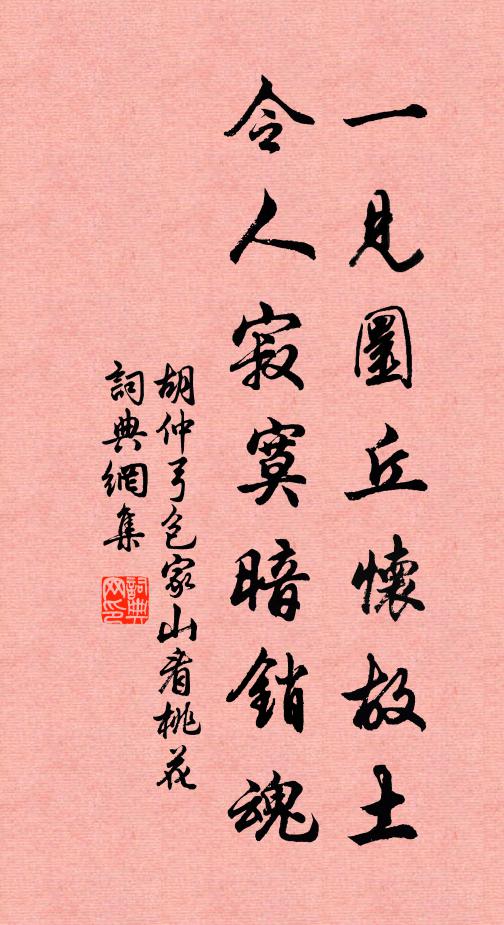 一見圜丘懷故土
令人寂寞暗銷魂
胡仲弓包家山看桃花
詞典網集
詞典网印